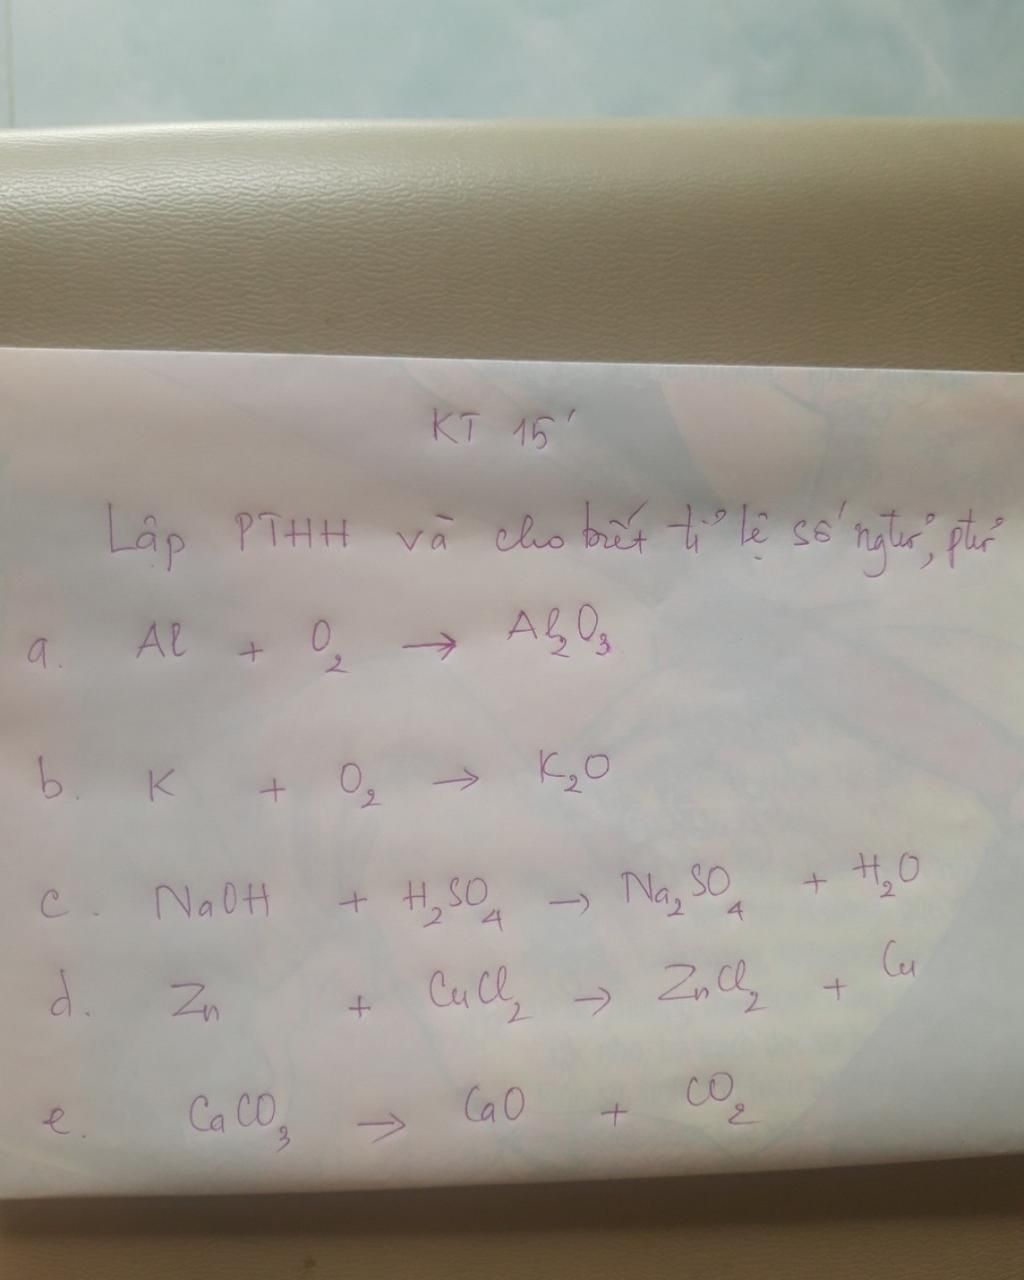 KT 15'
Lập PTHH và cho biết tỉ lệ số ngtử, ptử
a. Al + O₂ → Al₂O₃
b. K + O₂ → K₂O
c. NaOH + H₂SO₄ → Na₂SO₄ + H₂O
d. Zn + CuCl₂ → ZnCl₂ + Cu
e. CaCO₃ → CaO + CO₂